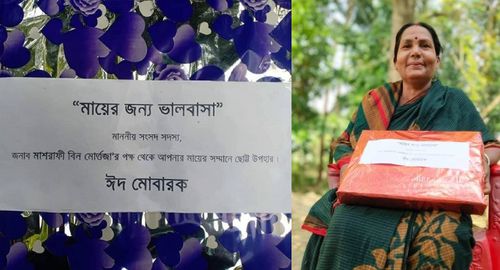 “মায়ের জন্য ভালবাসা”
মাননীয় সংসদ সদস্য,
জনাব মাশরাফী বিন মোর্ত্তজা'র পক্ষ থেকে আপনার মায়ের সম্মানে ছোট্ট উপহার ।
ঈদ মোবারক